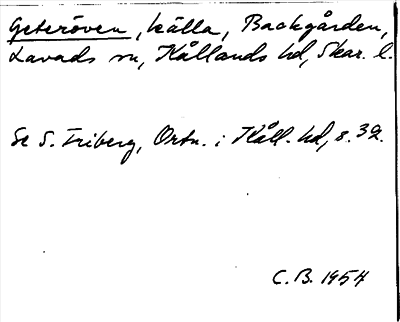 Geteröven, källa, Backgården,
Lavads sn, Kållands hd, Skar. l.
Se S. Friberg, Ortn. i Kåll. hd, s. 32.
C. B. 1954